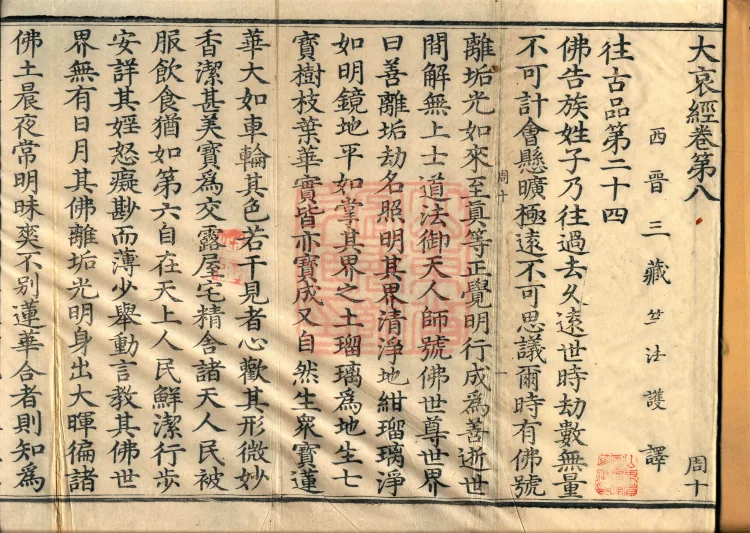 大哀經卷第八
西晉三藏竺法護譯
周十
往古品第二十四
佛告族姓子乃往過去久遠世時劫數無量
不可計會懸曠極遠不可思議爾時有佛號
周十
一
離垢光如來至真等正覺明行成為善逝世
間解無上士道法御天人師號佛世尊世界
曰善離垢劫名照明其界清淨地紺瑠璃淨
如明鏡地平如掌其界之土瑠璃為地生七
寶樹枝葉華實皆亦寶成又自然生眾寶蓮
華大如車輪其色若干見者心歡其形微妙
香潔甚美寶為交露屋宅精舍諸天人民被
服飲食猶如第六自在天上人民鮮潔行步
安詳其婬怒癡尠而薄少舉動言教其佛世
界無有日月其佛離垢光明身出大暉徧諸
佛土晨夜常明昧爽不別蓮華合者則知為